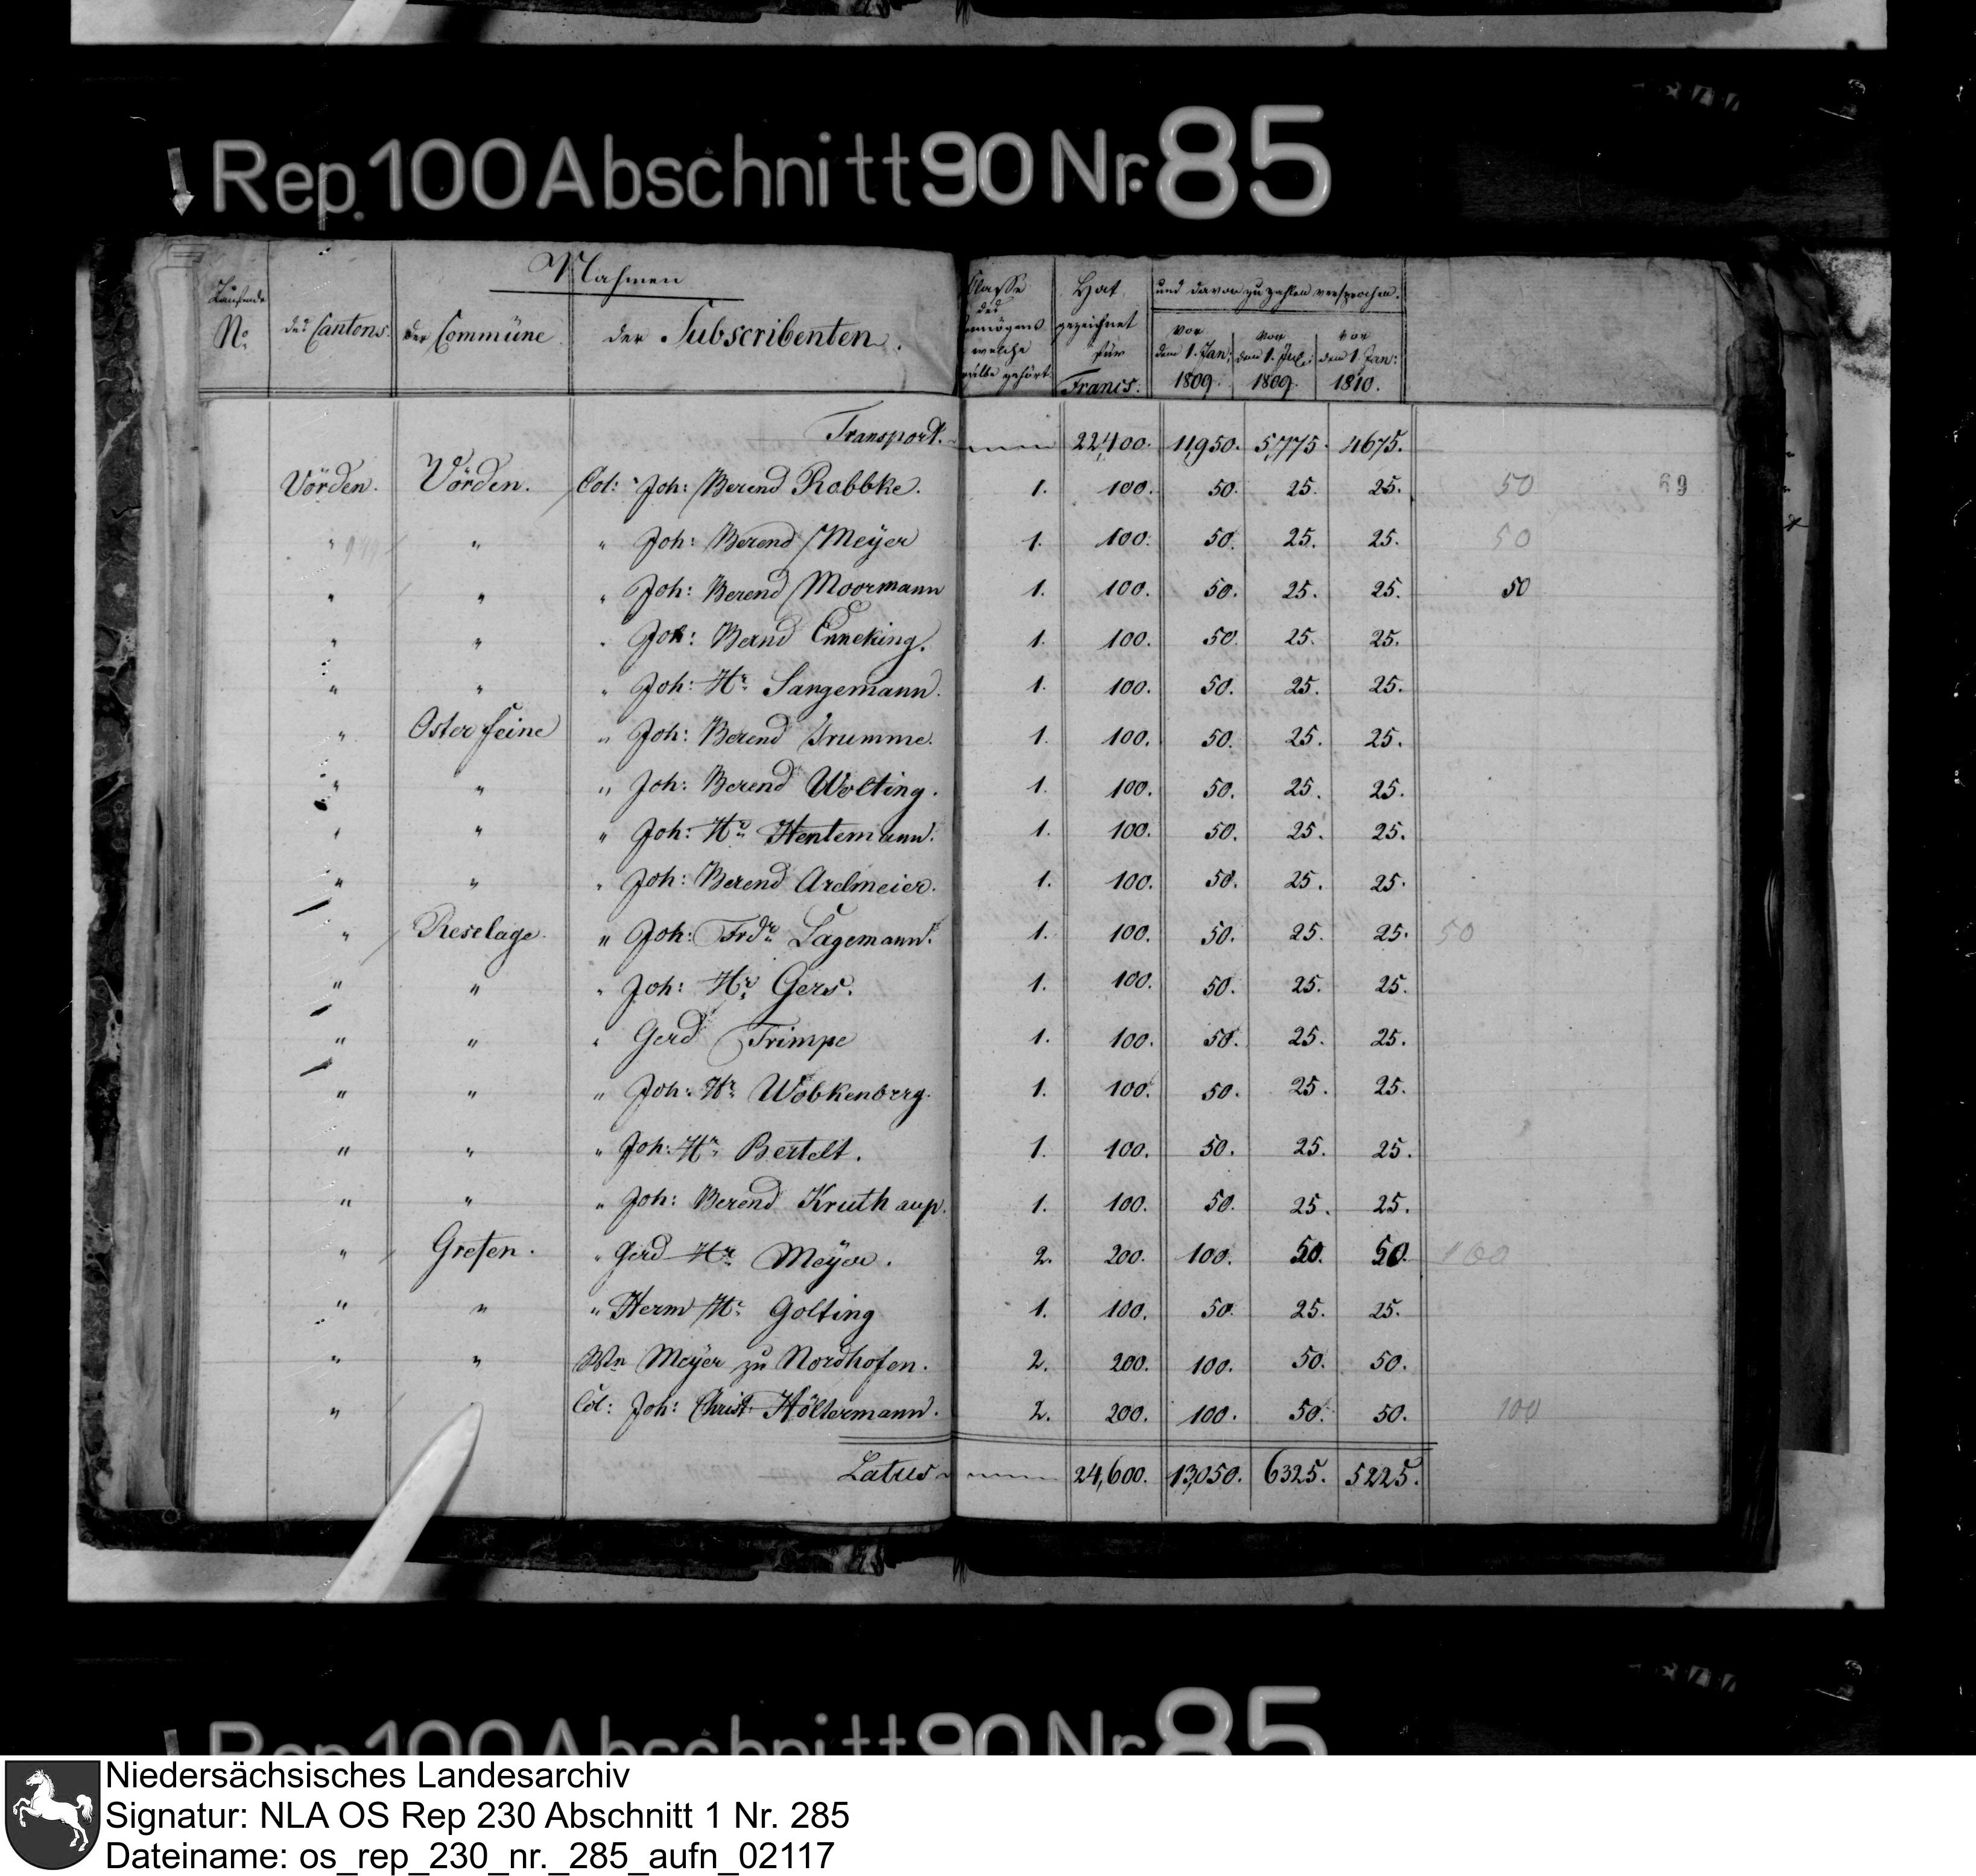 Rep. 100 Abschnitt 90 Nr. 85
Laufende No
Nahmen
des Cantons.
der Commüne
der Subscribenten.
Classe des Vermögens welche gehört
Hat gezeichnet für Francs.
und davon zu zahlen versprochen.
vor dem 1. Jan: 1809.
vor dem 1. Jul: 1809.
vor dem 1. Jan: 1810.
Transport. 22,400. 11,950. 5,775. 4675.
Vörden. Vörden. Col: Joh: Berend Robbke. 1. 100. 50. 25. 25. 50 69
" " " Joh: Berend Meÿer 1. 100. 50. 25. 25. 50
" " " Joh: Berend Moormann 1. 100. 50. 25. 25. 50
" " " Joh: Bernd Enneking. 1. 100. 50. 25. 25.
" " " Joh: Hr. Sangemann. 1. 100. 50. 25. 25.
" Osterfeine " Joh: Berend Krumme. 1. 100. 50. 25. 25.
" " " Joh: Berend Wolting. 1. 100. 50. 25. 25.
" " " Joh: Hr. Hentemann. 1. 100. 50. 25. 25.
" " " Joh: Berend Arelmeier. 1. 100. 50. 25. 25.
" Reselage " Joh: Frdr. Lagemann. 1. 100. 50. 25. 25. 50
" " " Joh: Hr. Gers. 1. 100. 50. 25. 25.
" " " Gerd Trimpe 1. 100. 50. 25. 25.
" " " Joh: Hr. Wobkenberg. 1. 100. 50. 25. 25.
" " " Joh: Hr. Bertelt. 1. 100. 50. 25. 25.
" " " Joh: Berend Kruthaup. 1. 100. 50. 25. 25.
" Grefen. " Gerd Hr. Meÿer. 2. 200. 100. 50. 50. 100
" " " Herm Hr. Golting 1. 100. 50. 25. 25.
" " Wn Meÿer zu Nordhofen. 2. 200. 100. 50. 50.
" " Col: Joh: Christ Höltermann. 2. 200. 100. 50. 50. 100
Latus 24,600. 13,050. 6325. 5225.
Rep. 100 Abschnitt 90 Nr. 85
Niedersächsisches Landesarchiv
Signatur: NLA OS Rep 230 Abschnitt 1 Nr. 285
Dateiname: os_rep_230_nr._285_aufn_02117